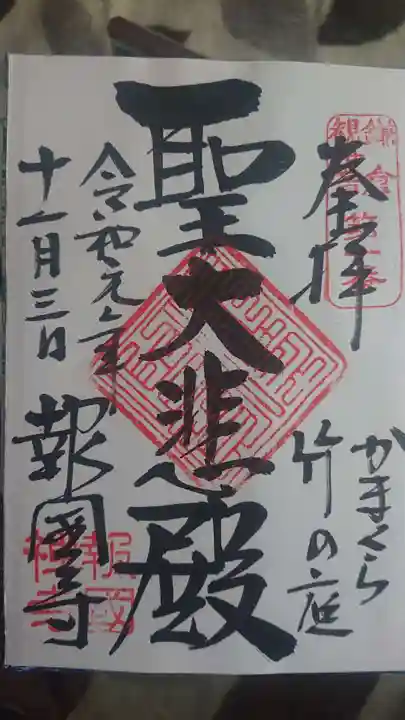 奉拝
かまくら
竹の庭
聖大悲殿
令和元年
十一月三日
報国寺
報國
禅寺